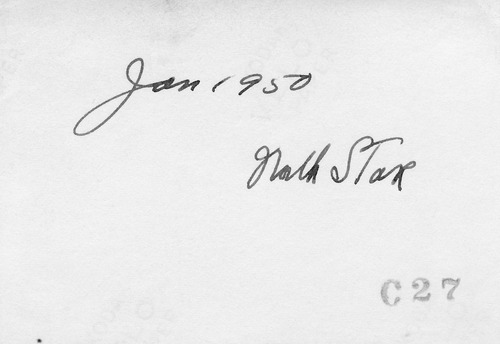 Jan 1950
North Star
C27